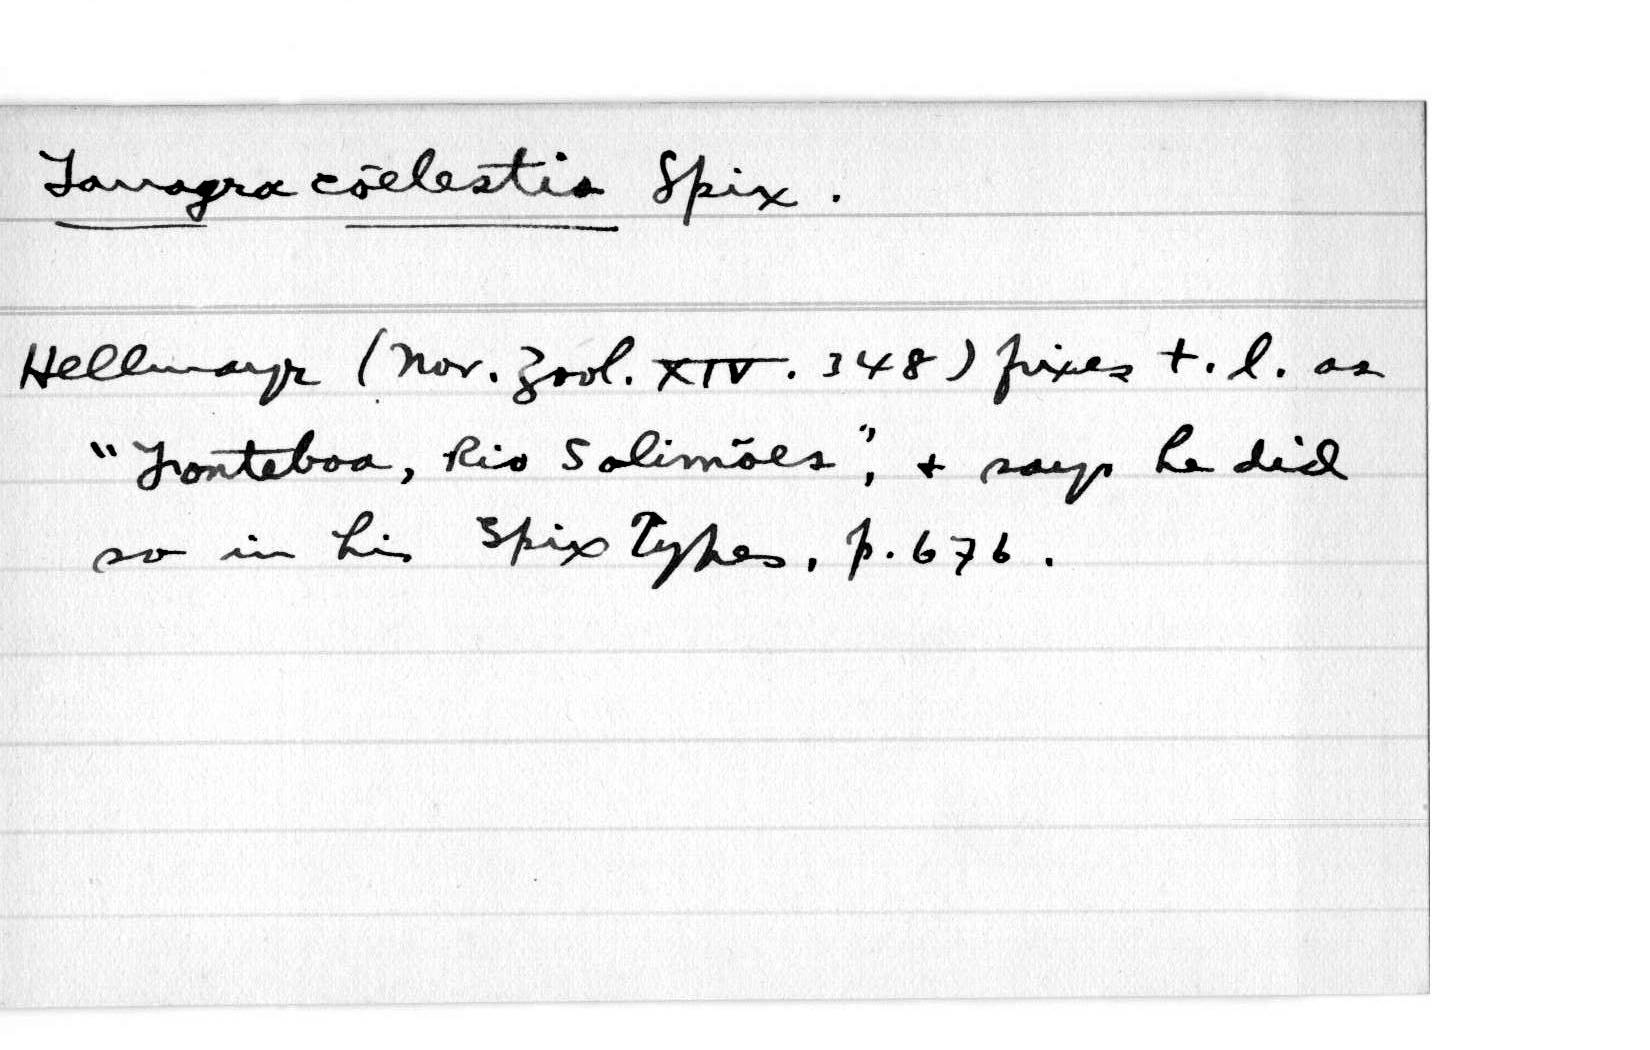 Tanagra cōelestis Spix.
Hellmayr (Nov. Zool. XIV. 348) fixes t. l. as
"Fonteboa, Rio Solimões", + says he did
so in his Spix Types, p. 676.